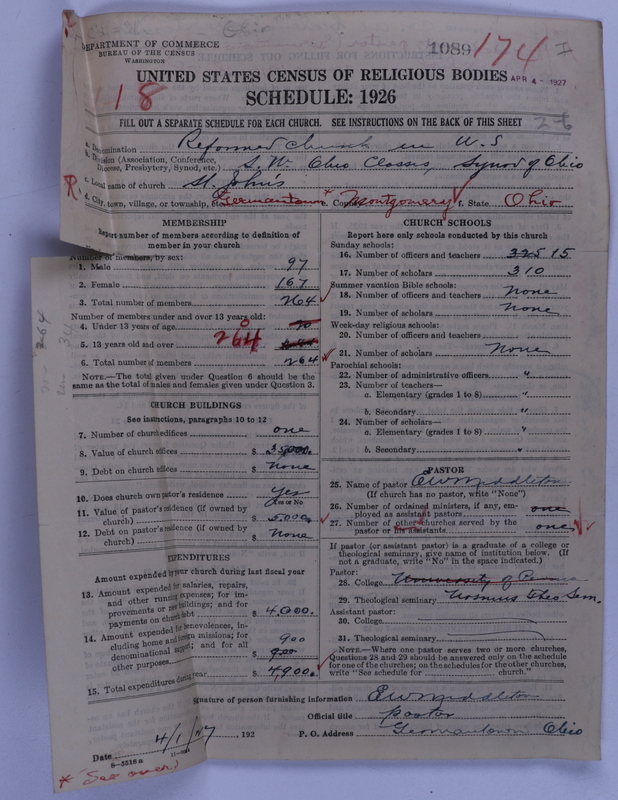 DEPARTMENT OF COMMERCE
BUREAU OF THE CENSUS
WASHINGTON
1089 174
118
UNITED STATES CENSUS OF RELIGIOUS BODIES
APR 4 - 1927
SCHEDULE: 1926
FILL OUT A SEPARATE SCHEDULE FOR EACH CHURCH. SEE INSTRUCTIONS ON THE BACK OF THIS SHEET
a. Denomination Reformed Church in U.S
b. Division (Association, Conference, Diocese, Presbytery, Synod, etc.) S.W. Ohio Classis, Synod of Ohio
c. Local name of church St. John's
d. City, town, village, or township, etc. Germantown * e. County Montgomery f. State Ohio
MEMBERSHIP
Report number of members according to definition of
member in your church
Number of members, by sex:
1. Male 97
2. Female 167
3. Total number of members 264
Number of members under and over 13 years old:
4. Under 13 years of age 0 20
5. 13 years old and over 264
6. Total number of members 264
NOTE.—The total given under Question 6 should be the
same as the total of males and females given under Question 3.
CHURCH BUILDINGS
See instructions, paragraphs 10 to 12
7. Number of church edifices one
8. Value of church edifices $ 35,000.
9. Debt on church edifices $ None
10. Does church own pastor's residence Yes
Yes or No
11. Value of pastor's residence (if owned by
church) $ 5,000.
12. Debt on pastor's residence (if owned by
church) $ None
EXPENDITURES
Amount expended by your church during last fiscal year
13. Amount expended for salaries, repairs,
and other running expenses; for im-
provements or new buildings; and for
payments on church debt $ 4,000.
14. Amount expended for benevolences, in-
cluding home and foreign missions; for
denominational support; and for all
other purposes 900 $ 900
15. Total expenditures during year $ 4,900.
CHURCH SCHOOLS
Report here only schools conducted by this church
Sunday schools:
16. Number of officers and teachers 325 15
17. Number of scholars 310
Summer vacation Bible schools:
18. Number of officers and teachers None
19. Number of scholars None
Week-day religious schools:
20. Number of officers and teachers
21. Number of scholars None
Parochial schools:
22. Number of administrative officers "
23. Number of teachers—
a. Elementary (grades 1 to 8) "
b. Secondary "
24. Number of scholars—
a. Elementary (grades 1 to 8) "
b. Secondary "
PASTOR
25. Name of pastor E W Middleton
(If church has no pastor, write "None")
26. Number of ordained ministers, if any, em-
ployed as assistant pastors one
27. Number of other churches served by the
pastor or his assistants one
If pastor (or assistant pastor) is a graduate of a college or
theological seminary, give name of institution below. (If
not a graduate, write "No" in the space indicated.)
Pastor:
28. College
29. Theological seminary Ursinus Theo Sem.
Assistant pastor:
30. College
31. Theological seminary
NOTE.—Where one pastor serves two or more churches,
Questions 28 and 29 should be answered only on the schedule
for one of the churches; on the schedules for the other churches,
write "See schedule for church."
Signature of person furnishing information E W Middleton
Official title pastor
Date 4/1/27 , 192 P. O. Address Germantown Ohio
8-5518a
* See over